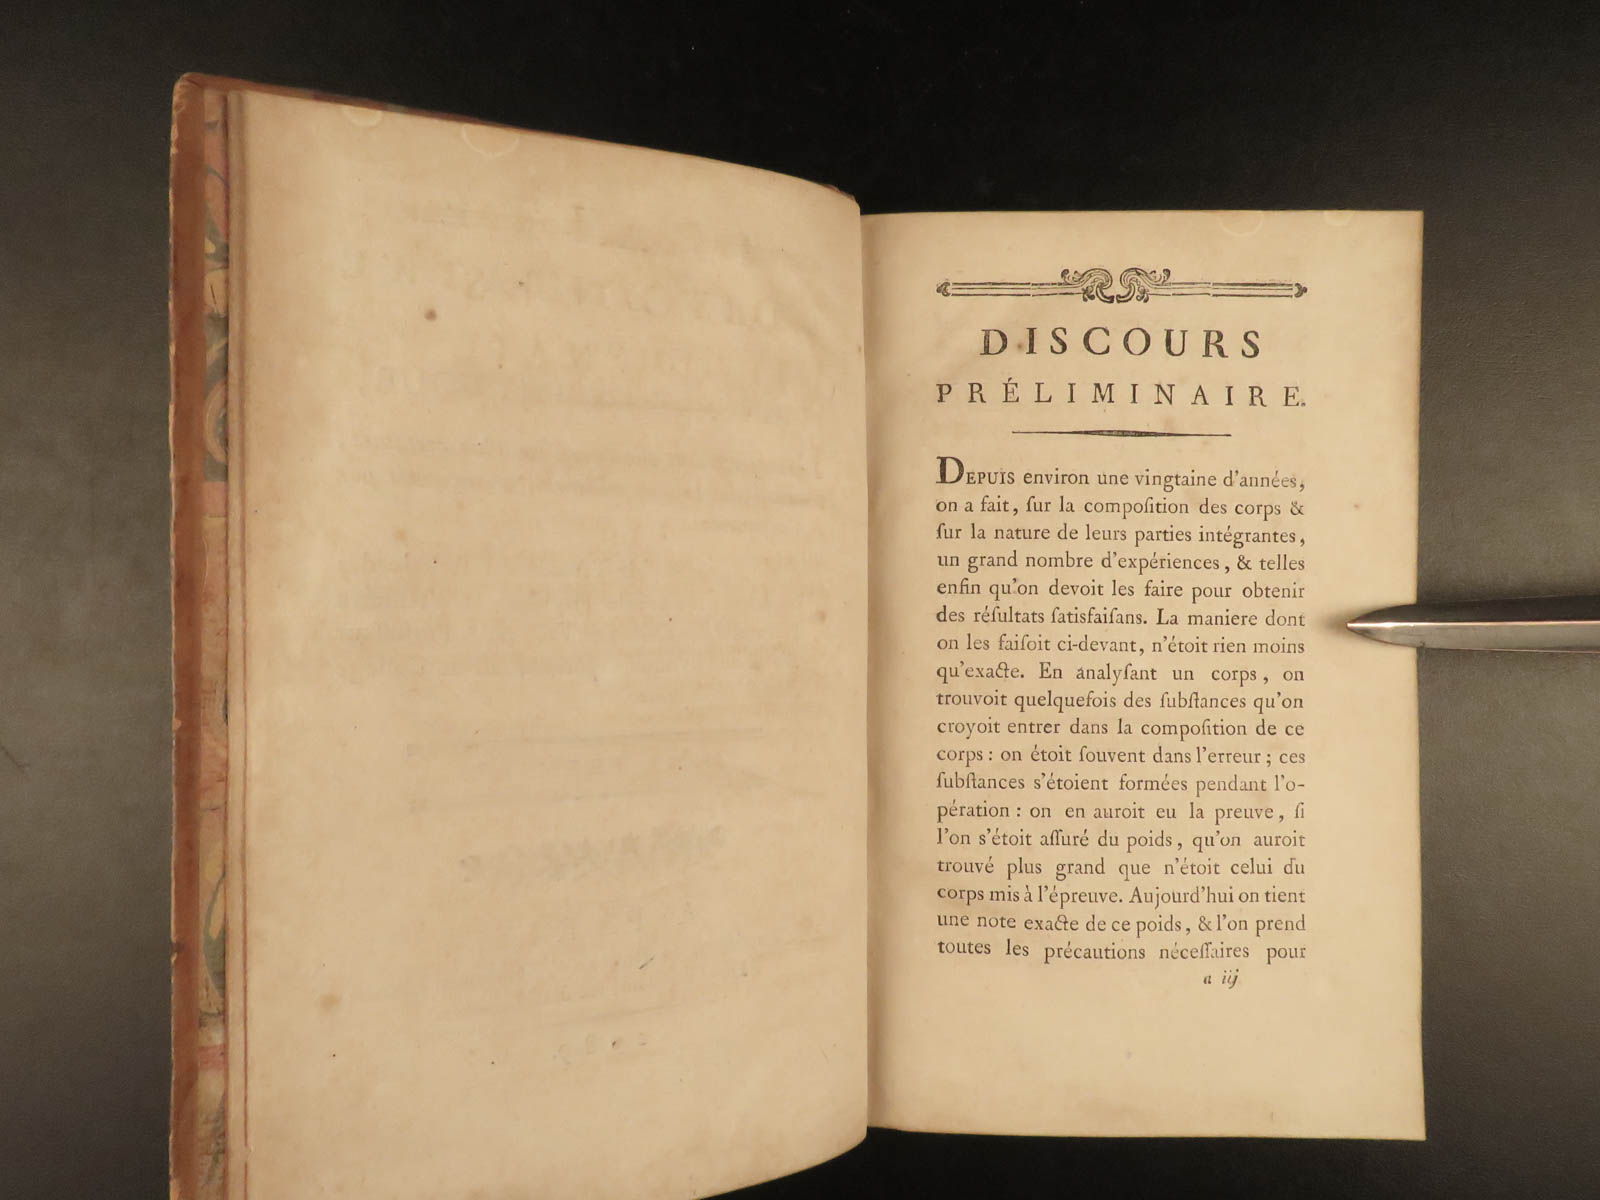 DISCOURS
PRÉLIMINAIRE.
DEPUIS environ une vingtaine d'années,
on a fait, ſur la compoſition des corps &
ſur la nature de leurs parties intégrantes,
un grand nombre d'expériences, & telles
enfin qu'on devoit les faire pour obtenir
des réſultats ſatisfaiſans. La maniere dont
on les faiſoit ci-devant, n'étoit rien moins
qu'exacte. En analyſant un corps, on
trouvoit quelquefois des ſubſtances qu'on
croyoit entrer dans la compoſition de ce
corps : on étoit ſouvent dans l'erreur ; ces
ſubſtances s'étoient formées pendant l'o-
pération : on en auroit eu la preuve, ſi
l'on s'étoit aſſuré du poids, qu'on auroit
trouvé plus grand que n'étoit celui du
corps mis à l'épreuve. Aujourd'hui on tient
une note exacte de ce poids, & l'on prend
toutes les précautions néceſſaires pour
a iij